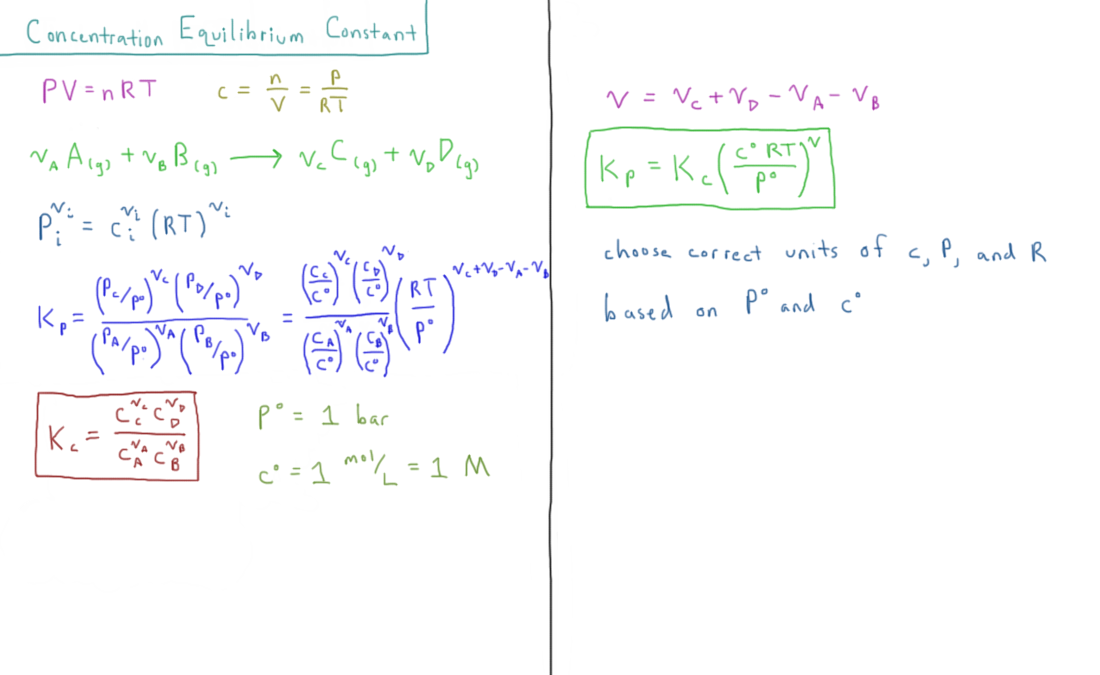 Concentration Equilibrium Constant
PV = nRT
c = n/V = P/RT
ν_A A(g) + ν_B B(g) ⟶ ν_C C(g) + ν_D D(g)
P_i^ν_i = c_i^ν_i (RT)^ν_i
K_P = (P_C/P°)^ν_C (P_D/P°)^ν_D / (P_A/P°)^ν_A (P_B/P°)^ν_B = (C_C/C°)^ν_C (C_D/C°)^ν_D / (C_A/C°)^ν_A (C_B/C°)^ν_B (RT/P°)^ν_C+ν_D-ν_A-ν_B
K_c = C_C^ν_C C_D^ν_D / C_A^ν_A C_B^ν_B
P° = 1 bar
c° = 1 mol/L = 1 M
ν = ν_C + ν_D - ν_A - ν_B
K_P = K_c (c° RT / P°)^ν
choose correct units of c, P, and R
based on P° and c°